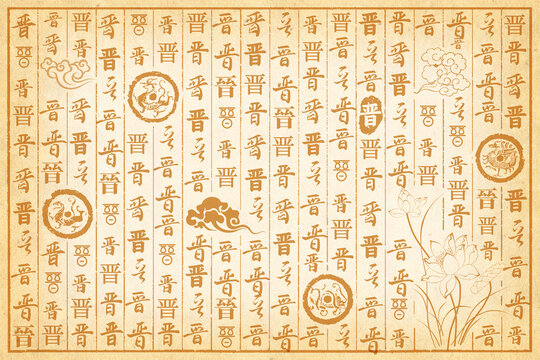 晋晋晋晋晋晋晋晋晋晋
晋晋晋晋晋晋晋晋晋晋
晋晋晋晋晋晋晋晋晋
晋晋晋晋晋
晋晋晋晋晋晋晋晋晋晋晋
晋晋晋晋晋晋晋晋晋晋晋晋
晋晋晋晋晋晋晋晋晋晋晋晋
晋晋晋晋晋晋晋晋晋晋
晋晋晋晋晋晋晋晋晋晋晋晋
晋晋晋晋晋晋晋晋晋晋晋晋
晋晋晋晋晋晋晋晋晋晋
晋晋晋晋晋晋晋晋晋晋晋
晋晋晋晋晋晋晋晋晋晋
晋晋晋晋晋晋晋晋晋晋
晋晋晋晋晋晋晋晋晋晋晋晋
晋晋晋晋晋晋晋晋晋晋
晋晋晋晋晋晋晋晋晋
晋晋晋晋晋晋晋晋晋晋晋晋